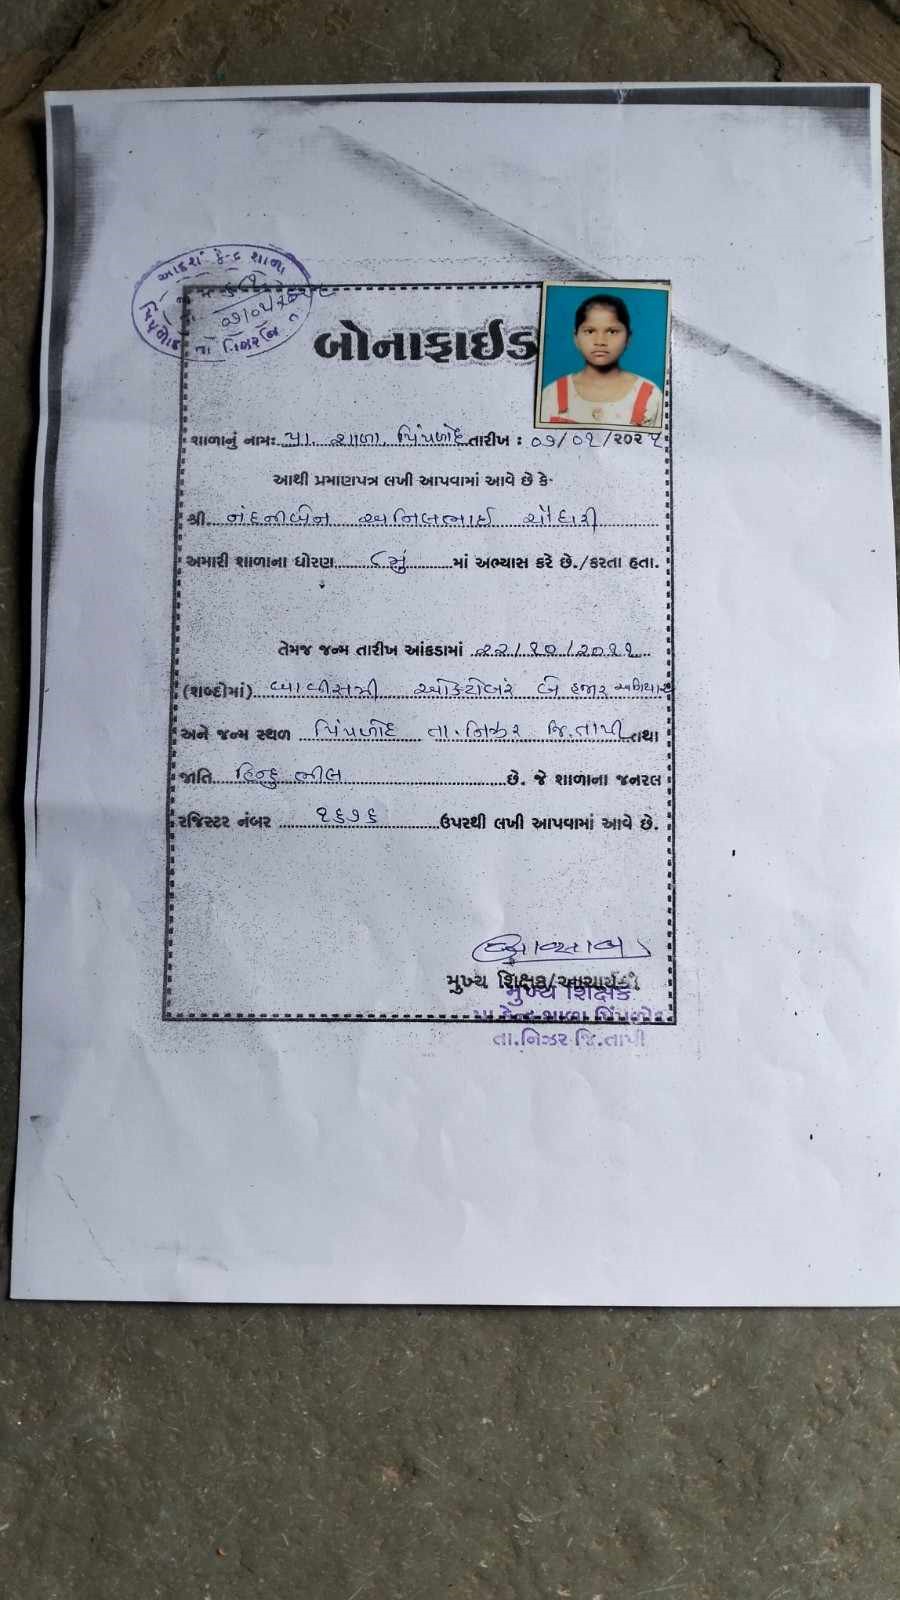 આદર્શ કેન્દ્ર શાળા
પિંપળોદ તા. નિઝર
બોનાફાઈડ
શાળાનું નામ: પ્રા. શાળા. પિંપળોદ તારીખ : ૦૭/૦૧/૨૦૨૫
આથી પ્રમાણપત્ર લખી આપવામાં આવે છે કે-
શ્રી. નંદનીબેન અનિલભાઈ ચૌધરી
અમારી શાળાના ધોરણ ૮મું માં અભ્યાસ કરે છે./કરતા હતા.
તેમજ જન્મ તારીખ આંકડામાં ૨૨/૧૦/૨૦૧૧
(શબ્દોમાં) બાવીસમી ઓક્ટોબર બે હજાર અગિયાર
અને જન્મ સ્થળ પિંપળોદ તા. નિઝર જિ. તાપી તથા
જાતિ હિન્દુ ભીલ છે. જે શાળાના જનરલ
રજિસ્ટર નંબર ૧૬૭૬ ઉપરથી લખી આપવામાં આવે છે.
મુખ્ય શિક્ષક/આચાર્યશ્રી
મુખ્ય શિક્ષક
પ્રા. કેન્દ્ર શાળા પિંપળોદ
તા.નિઝર જિ.તાપી